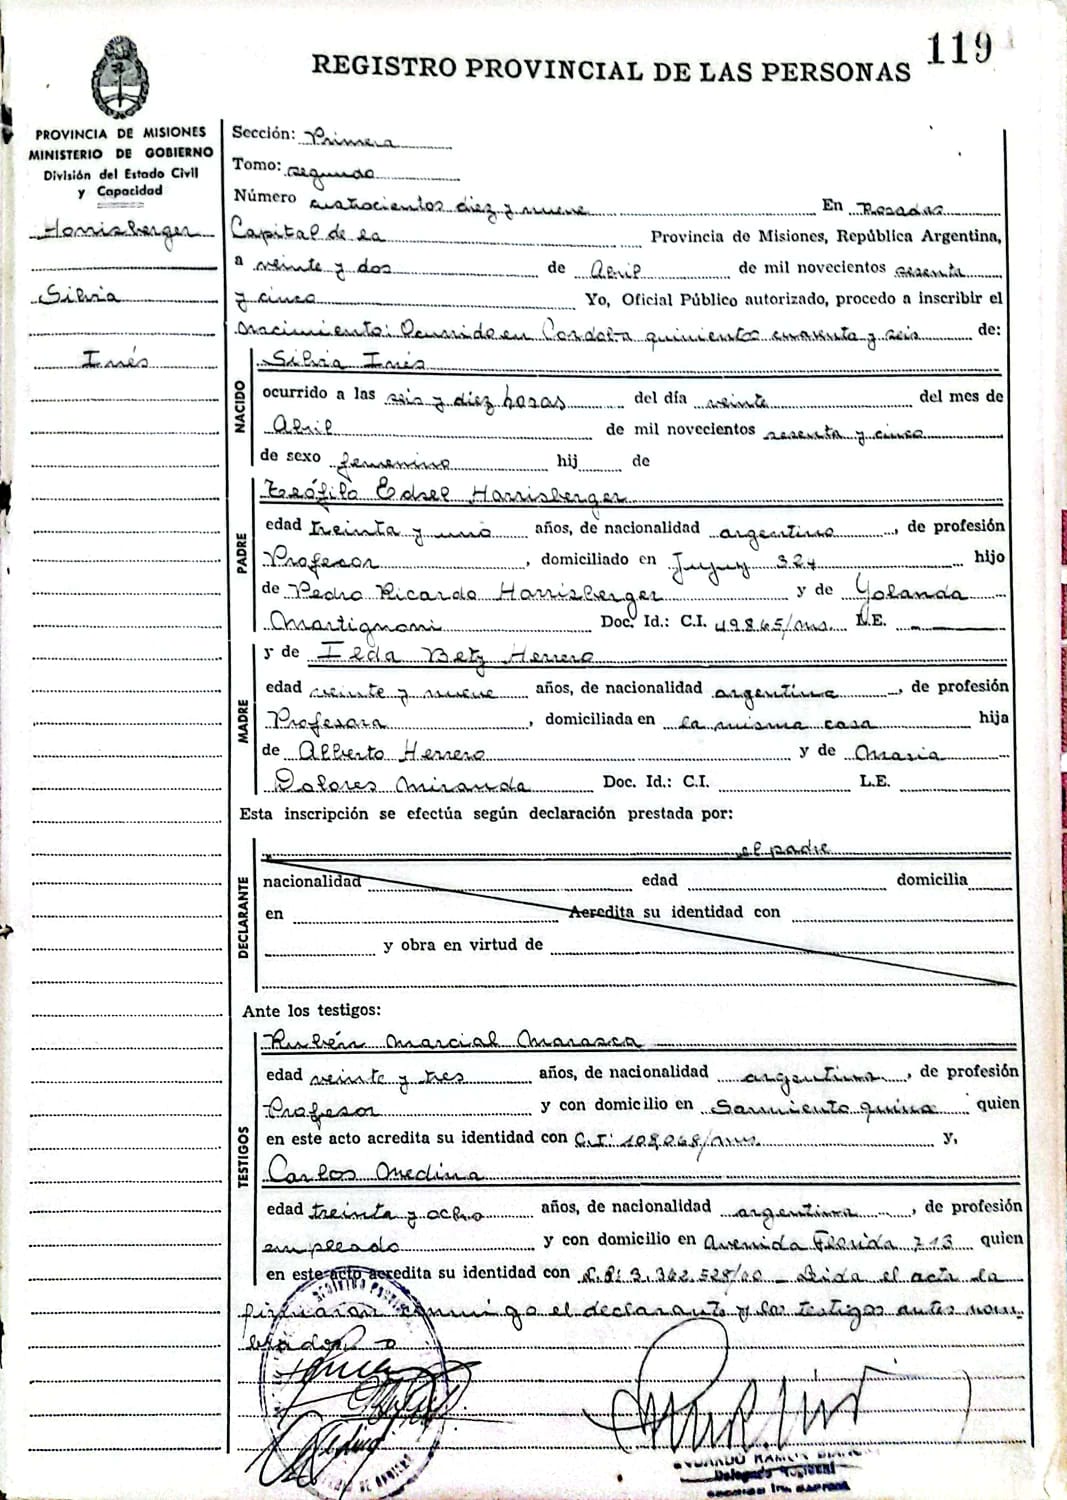 119
REGISTRO PROVINCIAL DE LAS PERSONAS
PROVINCIA DE MISIONES
MINISTERIO DE GOBIERNO
División del Estado Civil
y Capacidad
Harrisberger
Silvia
Inés
Sección: Primera
Tomo: segundo
Número cuatrocientos diez y nueve En Posadas
Capital de la Provincia de Misiones, República Argentina,
a veinte y dos de Abril de mil novecientos sesenta
y cinco Yo, Oficial Público autorizado, procedo a inscribir el
nacimiento: Ocurrido en Cordoba quinientos cuarenta y seis de:
NACIDO
Silvia Inés
ocurrido a las seis y diez horas del día veinte del mes de
Abril de mil novecientos sesenta y cinco
de sexo femenino hij de
PADRE
Teófilo Edsel Harrisberger
edad treinta y uno años, de nacionalidad argentino, de profesión
Profesor, domiciliado en Jujuy 324 hijo
de Pedro Ricardo Harrisberger y de Yolanda
Martignoni Doc. Id.: C.I. 49865/ms. L.E.
MADRE
y de Ilda Bety Herrero
edad veinte y nueve años, de nacionalidad argentina, de profesión
Profesora, domiciliada en la misma casa hija
de Alberto Herrero y de Maria
Dolores Miranda Doc. Id.: C.I. L.E.
Esta inscripción se efectúa según declaración prestada por:
DECLARANTE
el padre
nacionalidad edad domicilia
en Acredita su identidad con
y obra en virtud de
Ante los testigos:
TESTIGOS
Rubén Marcial Marasca
edad veinte y tres años, de nacionalidad argentina, de profesión
Profesor y con domicilio en Sarmiento quien
en este acto acredita su identidad con C.I: 108,068/ms. y,
Carlos Medina
edad treinta y ocho años, de nacionalidad argentina, de profesión
empleado y con domicilio en Avenida Florida 713 quien
en este acto acredita su identidad con 3.362.528 Leida el acta la
firmaran conmigo el declarante y los testigos antes nom-
brados
RAMON
Delegado